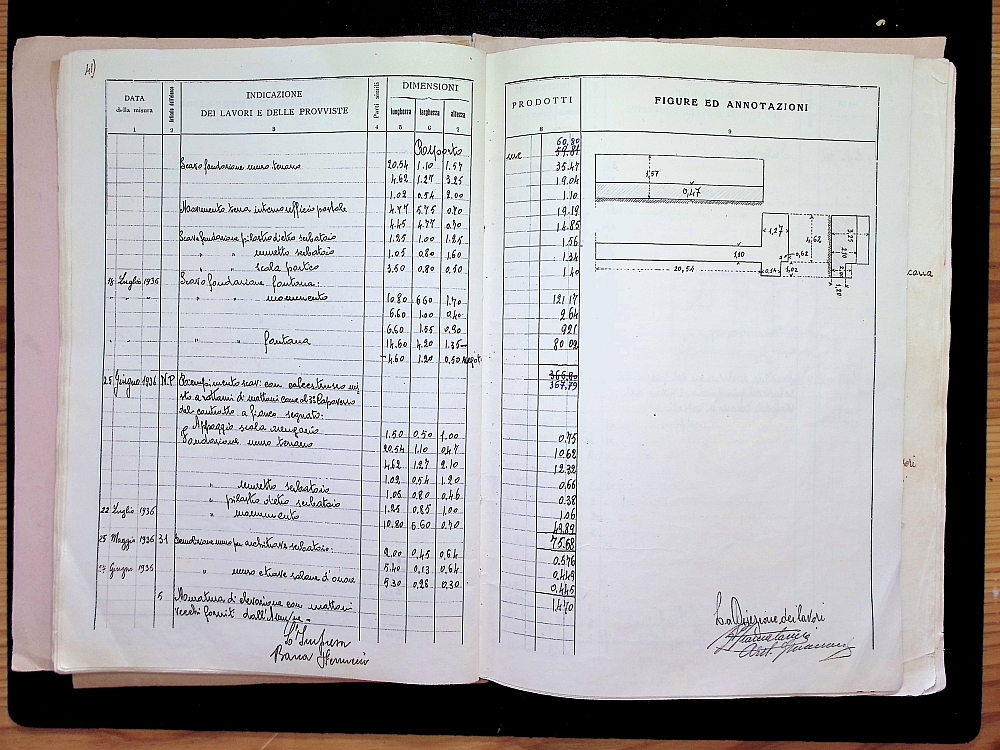 41)
DATA
della misura
Articolo dell'elenco
INDICAZIONE
DEI LAVORI E DELLE PROVVISTE
Parti simili
DIMENSIONI
lunghezza larghezza altezza
PRODOTTI
FIGURE ED ANNOTAZIONI
1 2 3 4 5 6 7 8 9
Rapporto 60,80
mc 59.81
Scavo fondazione muro terrano 20.54 1.10 1.57 35.47
4.62 1.27 3.25 19.04
1.02 0.54 2.00 1.10
Movimento terra interno ufficio postale 4.77 5.75 0.70 19.19
4.45 4.77 0.70 14.85
Scavo fondazione pilastro dietro serbatoio 1.25 1.00 1.25 1.56
" " muretto serbatoio 1.05 0.80 1.60 1.34
" " scala portico 3.50 0.80 0.50 1.40
18 Luglio 1936 Scavo fondazione fontana:
" " " " monumento 10.80 6.60 1.70 121 17
6.60 1.00 0.40 2 64
6.60 1.55 0.90 9 21
" " " " fontana 14.60 4.20 1.35 80 02
4.60 1.20 0.50
366.80
367.79
25 Giugno 1936 N.P. Riempimento scavi con calcestruzzo mi
sto a rottami di mattoni come al 3° Capoverso
del contratto a fianco segnato:
Appoggio scala arengario 1.50 0.50 1.00 0.75
Fondazione muro terrano 20.54 1.10 0.47 10.62
4.62 1.27 2.10 12.32
1.02 0.54 1.20 0.66
" muretto serbatoio 1.05 0.80 0.46 0.38
" pilastro dietro serbatoio 1.25 0.85 1.00 1.06
22 Luglio 1936 " monumento 10.80 6.60 0.70 49.89
75.68
25 Maggio 1936 31 Demolizione muro per architrave serbatoio: 2.00 0.45 0.64 0.576
5.40 0.13 0.64 0.449
27 Giugno 1936 " muro e trave salone d'onore 5.30 0.28 0.30 0.445
1.470
5 Muratura di elevazione con mattoni
vecchi forniti dall'
L'Impresa
1,57
0,47
1,27
4,62
3,25
2,10
1,10
0,62
20,54
0,54
1,02
1,20
La Direzione dei lavori
cava